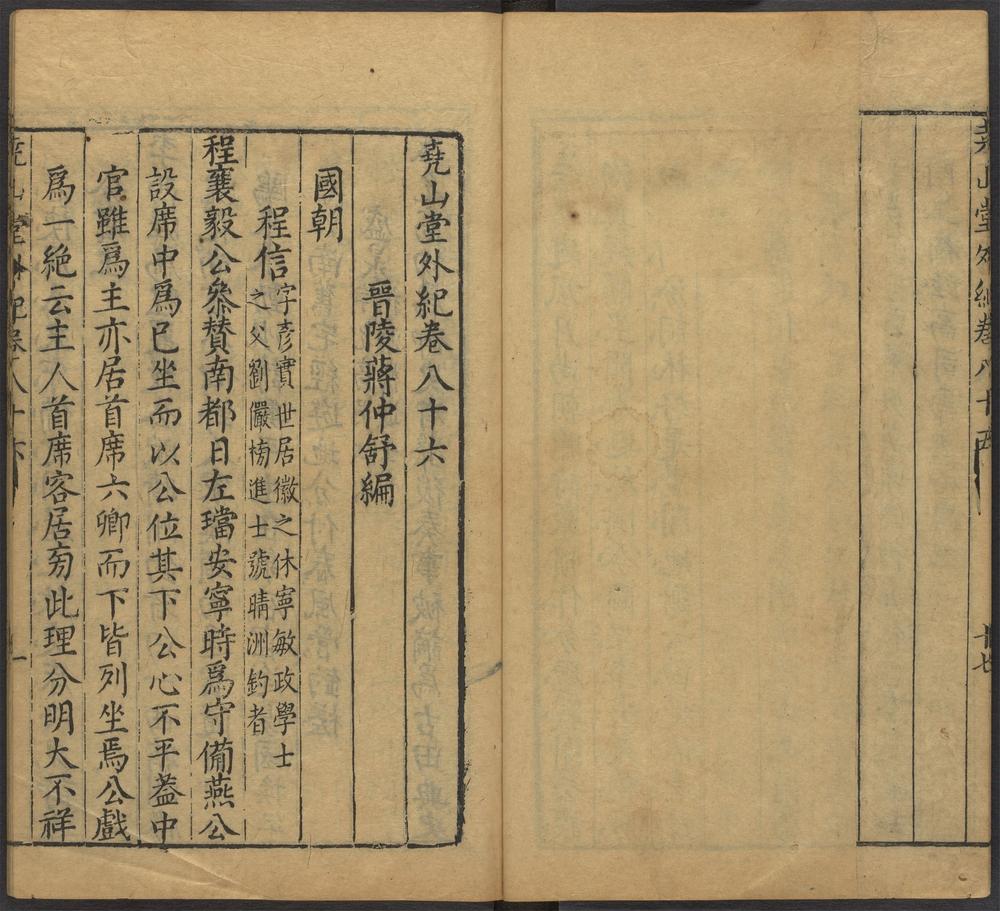 堯山堂外紀卷八十五
廿七
堯山堂外紀卷八十六
晉陵蔣仲舒編
國朝
程信字彥實世居徽之休寧敏政學士
之父劉儼榜進士號晴洲釣者
程襄毅公叅贊南都日左璫安寧時爲守備燕公
設席中爲已坐而以公位其下公心不平葢中
官雖爲主亦居首席六卿而下皆列坐焉公戲
爲一絶云主人首席客居旁此理分明大不祥
堯山堂外紀卷八十六
一